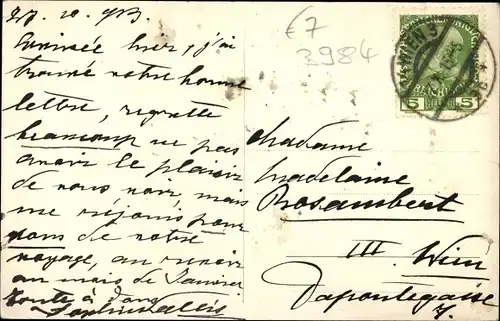 10. 1913.
Arrivée hier, j'ai
trouvé votre bonne
lettre, regrette
beaucoup ne pas
avoir le plaisir
de vous voir, mais
me réjouis pour
vous de votre
voyage, au revoir
au mois de Janvier
toute à vous
€7
3984
WIEN 3
5 5
Madame
Madelaine
Rosambert
III. Wien
Dapontegasse